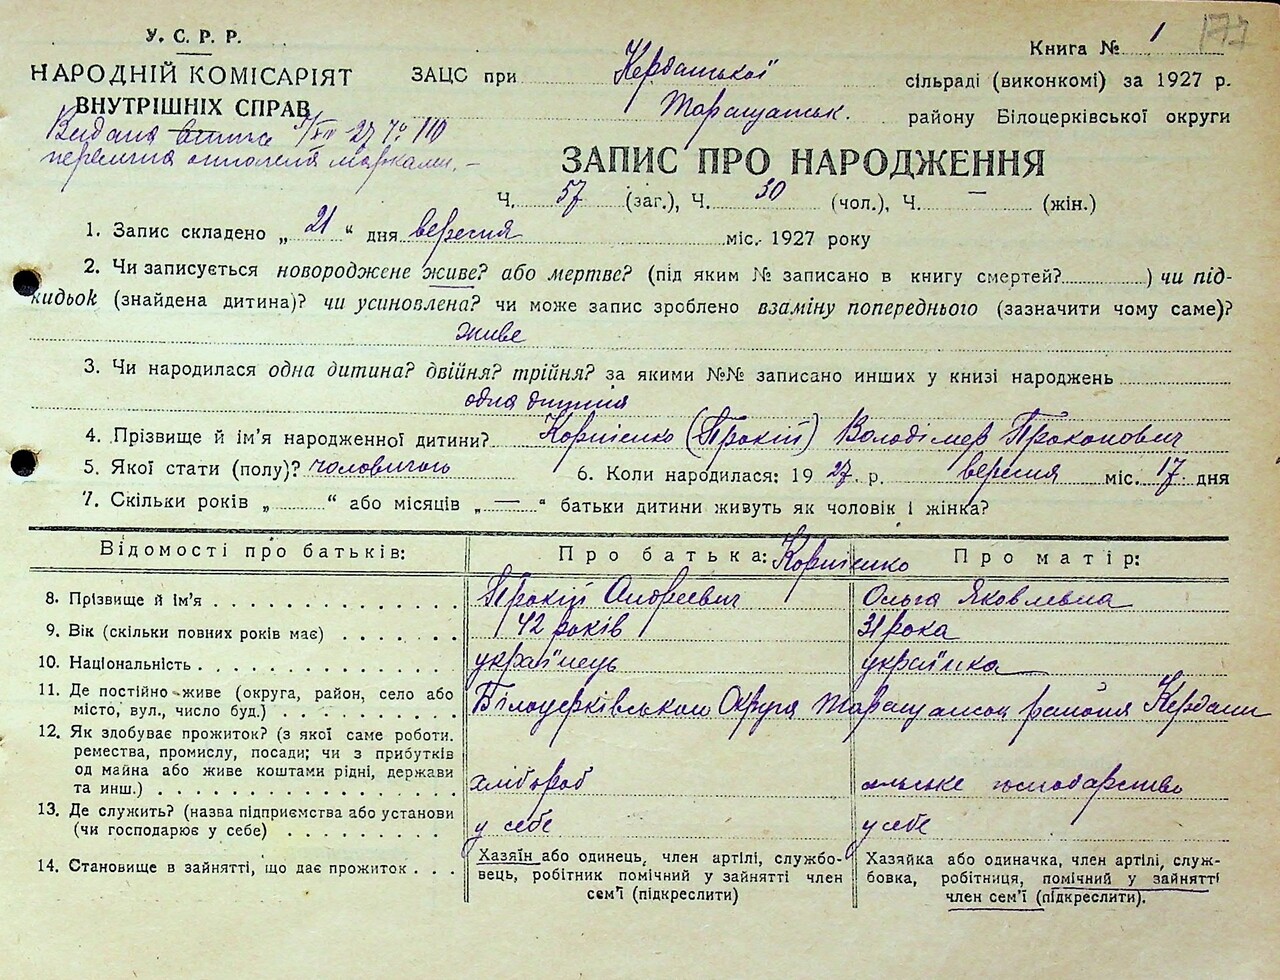 У. С. Р. Р.
НАРОДНІЙ КОМІСАРІЯТ
ВНУТРІШНІХ СПРАВ
Видана 27 № 110
Книга № 1 177
ЗАЦС при Кердатської сільраді (виконкомі) за 1927 р.
Таращатськ. району Білоцерківської округи
ЗАПИС ПРО НАРОДЖЕННЯ
Ч. 57 (заг.), Ч. 30 (чол.), Ч. — (жін.)
1. Запис складено „ 21 “ дня вересня міс. 1927 року
2. Чи записується новороджене живе? або мертве? (під яким № записано в книгу смертей? ) чи під-
кидьок (знайдена дитина)? чи усиновлена? чи може запис зроблено взаміну попереднього (зазначити чому саме)?
живе
3. Чи народилася одна дитина? двійня? трійня? за якими №№ записано инших у книзі народжень
одна дитиня
4. Прізвище й ім’я народженної дитини? Корнієнко (Прокій) Володімер Прокопович
5. Якої стати (полу)? чоловичою 6. Коли народилася: 19 27 р. вересня міс. 17 дня
7. Скільки років „ “ або місяців „ — “ батьки дитини живуть як чоловік і жінка?
Відомості про батьків: Про батька: Корнієнко Про матір:
8. Прізвище й ім’я Прокій Андреевич Ольга Яковлевна
9. Вік (скільки повних років має) 42 років 31 рока
10. Національність українець українка
11. Де постійно живе (округа, район, село або
місто, вул., число буд.) Білоцерківського Округа району Кердани
12. Як здобуває прожиток? (з якої саме роботи.
ремества, промислу, посади; чи з прибутків
од майна або живе коштами рідні, держави
та инш.) хлібороб сільське господарство
13. Де служить? (назва підприємства або установи
(чи господарює у себе) у себе у себе
14. Становище в зайнятті, що дає прожиток
Хазяїн або одинець, член артілі, службо-
вець, робітник помічний у зайнятті член
сем’ї (підкреслити)
Хазяйка або одиначка, член артілі, служ-
бовка, робітниця, помічний у зайнятті
член сем’ї (підкреслити).